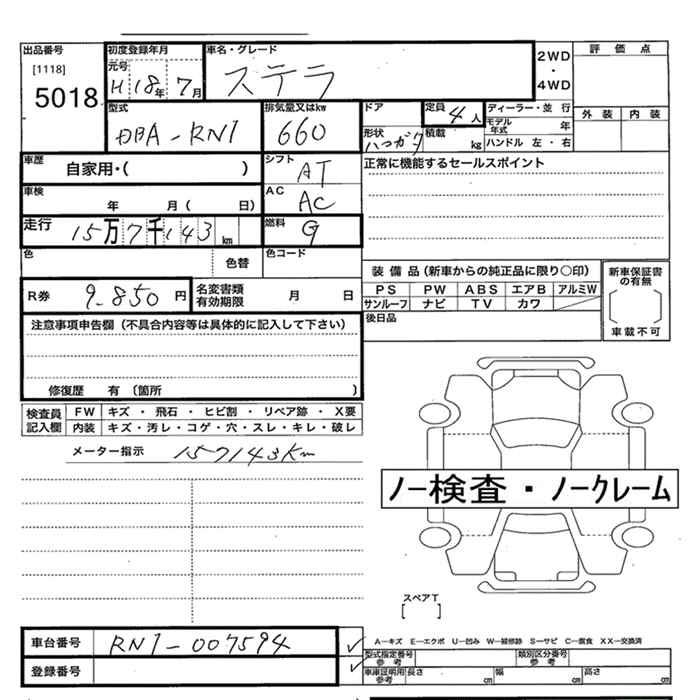 出品番号
[1118]
5018
初度登録年月
元号
H 18年 7月
車名・グレード
ステラ
2WD
・
4WD
評価点
外装 内装
型式
DBA-RN1
排気量又はkw
660
ドア
形状
ハコガタ
定員
4人
積載
kg
ディーラー・並行
モデル年式 年
ハンドル 左・右
車歴
自家用・( )
シフト
AT
正常に機能するセールスポイント
車検
年 月( 日)
AC
AC
走行
15万7千143km
燃料
G
色
色替
色コード
R券
9,850円
名変書類
有効期限 月 日
装備品(新車からの純正品に限り○印)
PS PW ABS エアB アルミW
サンルーフ ナビ TV カワ
新車保証書
の有無
[ ]
車載不可
後日品
注意事項申告欄(不具合内容等は具体的に記入して下さい)
修復歴 有 〔箇所 〕
検査員
記入欄
FW キズ・飛石・ヒビ割・リペア跡・X要
内装 キズ・汚レ・コゲ・穴・スレ・キレ・破レ
メーター指示 157143Km
ノー検査・ノークレーム
スペアT
[ ]
車台番号 RN1-007594
登録番号
A-キズ E-エクボ U-凹み W-補修跡 S-サビ C-腐食 XX-交換済
型式指定番号
参考
類別区分番号
参考
車庫証明用
参考
長さ cm 幅 cm 高さ cm